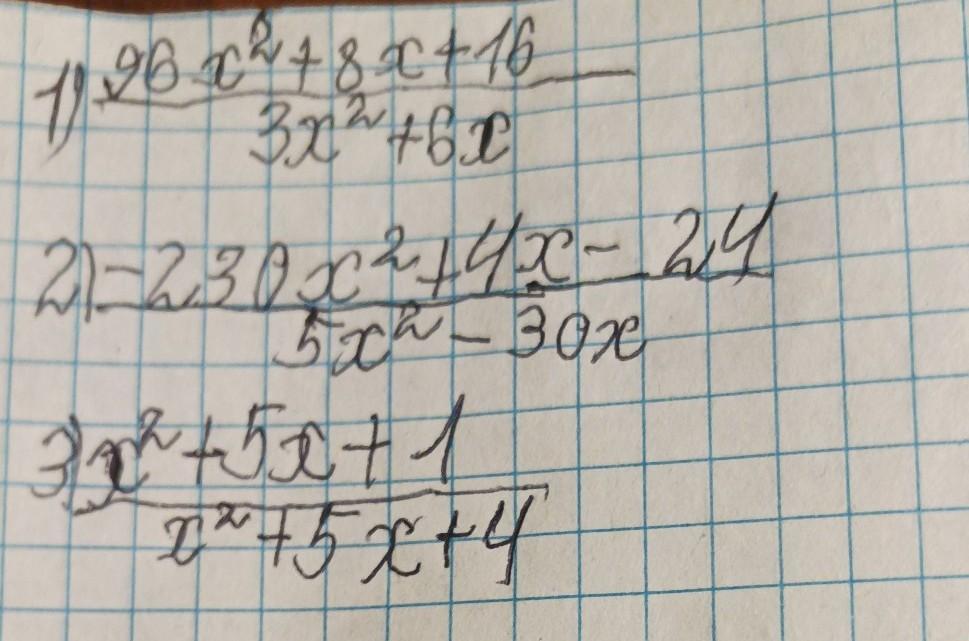 1) 96x²+8x+16
3x²+6x
2) -230x²+4x-24
5x²-30x
3) x²+5x+1
x²+5x+4